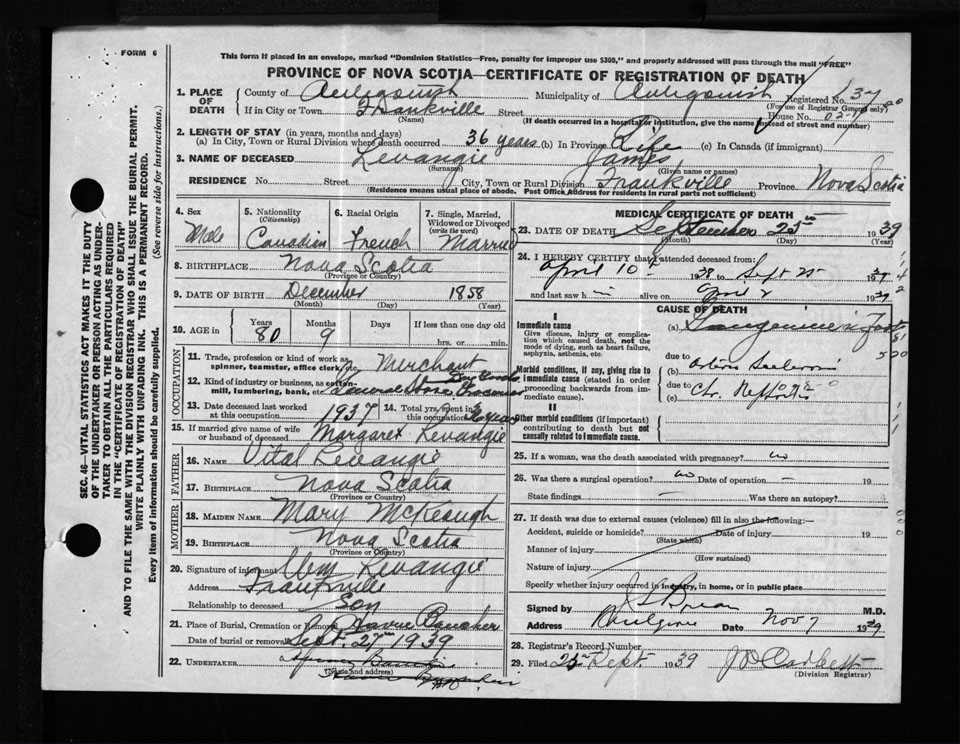 FORM 6
This form if placed in an envelope, marked "Dominion Statistics—Free, penalty for improper use $300," and properly addressed will pass through the mail "FREE"
PROVINCE OF NOVA SCOTIA—CERTIFICATE OF REGISTRATION OF DEATH
1. PLACE OF DEATH County of Antigonish Municipality of Antigonish Registered No.
(For use of Registrar General only)
If in City or Town Frankville Street House No.
(Name) (If death occurred in a hospital or institution, give the name instead of street and number)
2. LENGTH OF STAY (in years, months and days)
(a) In City, Town or Rural Division where death occurred 36 years (b) In Province Life (c) In Canada (if immigrant)
3. NAME OF DECEASED Levangie James
(Surname) (Given name or names)
RESIDENCE No. Street City, Town or Rural Division Frankville Province Nova Scotia
(Residence means usual place of abode. Post Office Address for residents in rural parts not sufficient)
4. Sex Male
5. Nationality (Citizenship) Canadian
6. Racial Origin French
7. Single, Married, Widowed or Divorced (write the word) Married
8. BIRTHPLACE Nova Scotia
(Province or Country)
9. DATE OF BIRTH December 1858
(Month) (Day) (Year)
10. AGE in Years Months Days If less than one day old
80 9 hrs. or min.
OCCUPATION
11. Trade, profession or kind of work as spinner, teamster, office clerk, etc. Merchant
12. Kind of industry or business, as cotton-mill, lumbering, bank, etc. General Store
13. Date deceased last worked at this occupation 1937
14. Total yrs. spent in this occupation
15. If married give name of wife or husband of deceased Margaret Levangie
FATHER
16. NAME Vital Levangie
17. BIRTHPLACE Nova Scotia
(Province or Country)
MOTHER
18. MAIDEN NAME Mary McKeough
19. BIRTHPLACE Nova Scotia
(Province or Country)
20. Signature of informant Clem Levangie
Address Frankville
Relationship to deceased Son
21. Place of Burial, Cremation or Removal Havre Boucher
Date of burial or removal Sept. 27th 1939
22. UNDERTAKER
(Name and address)
MEDICAL CERTIFICATE OF DEATH
23. DATE OF DEATH September 25th 1939
(Month) (Day) (Year)
24. I HEREBY CERTIFY that I attended deceased from:
April 10th 1938 to Sept 25 1939
and last saw h im alive on April 2 1939
CAUSE OF DEATH
I
Immediate cause
Give disease, injury or complication which caused death, not the mode of dying, such as heart failure, asphyxia, asthenia, etc.
(a)
due to
Morbid conditions, if any, giving rise to immediate cause (stated in order proceeding backwards from immediate cause).
(b)
due to
(c) Chr. Nephritis
II
Other morbid conditions (if important) contributing to death but not causally related to immediate cause.
25. If a woman, was the death associated with pregnancy? no
26. Was there a surgical operation? no Date of operation — 19
State findings — Was there an autopsy?
27. If death was due to external causes (violence) fill in also the following:—
Accident, suicide or homicide? Date of injury 19
(State which)
Manner of injury
(How sustained)
Nature of injury
Specify whether injury occurred in industry, in home, or in public place
Signed by M.D.
Address Date Nov 7 1939
28. Registrar's Record Number
29. Filed Sept. 1939 J D Corbett
(Division Registrar)
SEC. 46—VITAL STATISTICS ACT MAKES IT THE DUTY
OF THE UNDERTAKER OR PERSON ACTING AS UNDER-
TAKER TO OBTAIN ALL THE PARTICULARS REQUIRED
IN THE "CERTIFICATE OF REGISTRATION OF DEATH"
AND TO FILE THE SAME WITH THE DIVISION REGISTRAR WHO SHALL ISSUE THE BURIAL PERMIT.
WRITE PLAINLY WITH UNFADING INK. THIS IS A PERMANENT RECORD.
Every item of information should be carefully supplied. (See reverse side for instructions.)